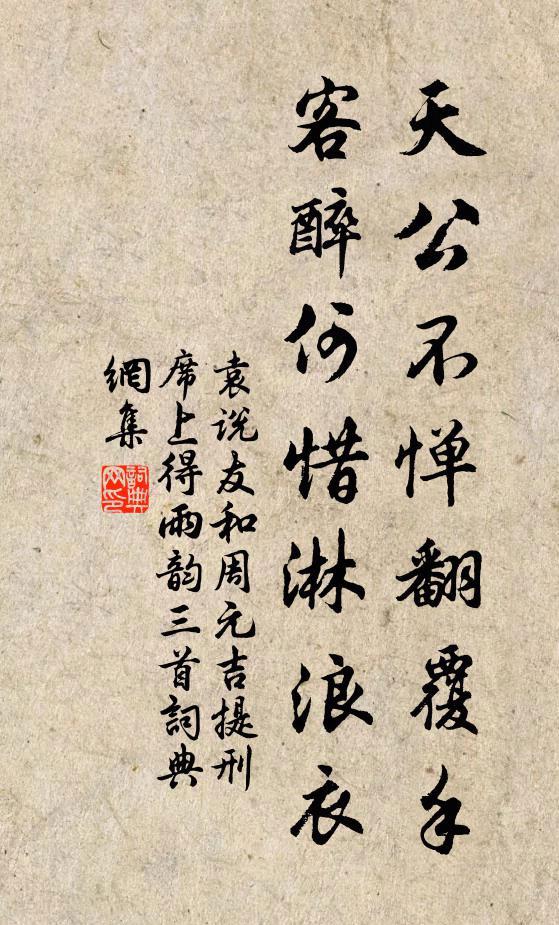 天公不惮翻覆手
客醉何惜淋浪衣
袁说友和周元吉提刑
席上得雨韵三首詞典
網集
詞典
网印